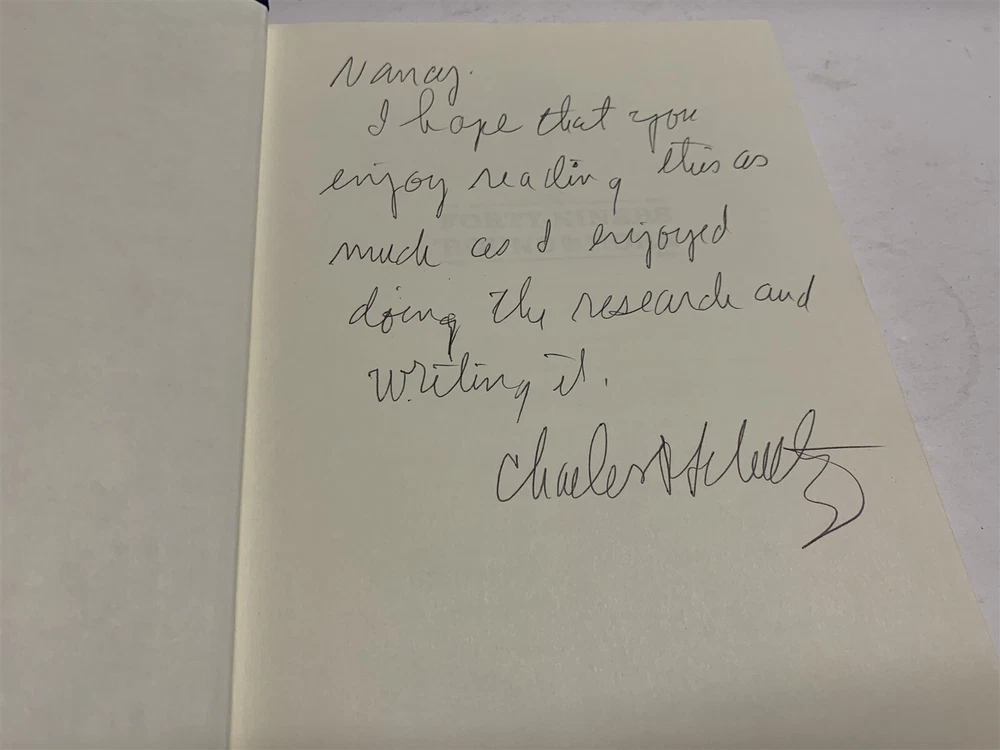 Nancy.
I hope that you
enjoy reading this as
much as I enjoyed
doing the research and
writing it.
Charles